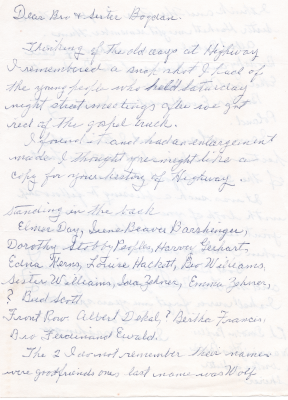 Dear Bro & Sister Bogdan.
Thinking of the old days at Highway
I remembered a snap shot I had of
the young people who held Saturday
night street meetings after we got
red of the gospel truck.
I found it and had an enlargement
made I thought you might like a
copy for your history of Highway.
Standing in the back
Elmer Day, Irene Beaver Barshinger,
Dorothy Stobbs Peoples, Harvey Gerhart,
Edna Kerns, Louise Hackett, Bro Williams,
Sister Williams, Ida Zehner, Emma Zehner,
? Bud Scott
Front Row Albert Dekal, ? Bertha Francis,
Bro Ferdinand Ewald.
The 2 I do not remember their names
were good friends ones last name was Wolf